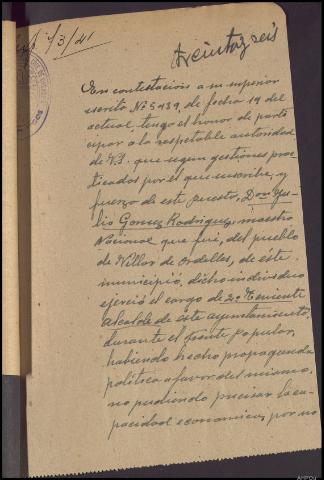 1/3/41
treinta y seis
En contestación a su superior
escrito Nº 5939, de fecha 19 del
actual, tengo el honor de parti
cipar a la respetable autoridad
de V.S. que segun gestiones prac
ticadas por el que suscribe, y
fuerza de este puesto, Don Ju-
lio Gomez Rodriguez, maestro
Nacional que fué, del pueblo
de Villar de Ordelles, de éste
municipio, dicho individuo
ejerció el cargo de 2º Teniente
alcalde de este ayuntamiento,
durante el frente popular,
habiendo hecho propaganda
politica a favor del mismo,
no pudiendo precisar la ca-
pacidad economica, por no